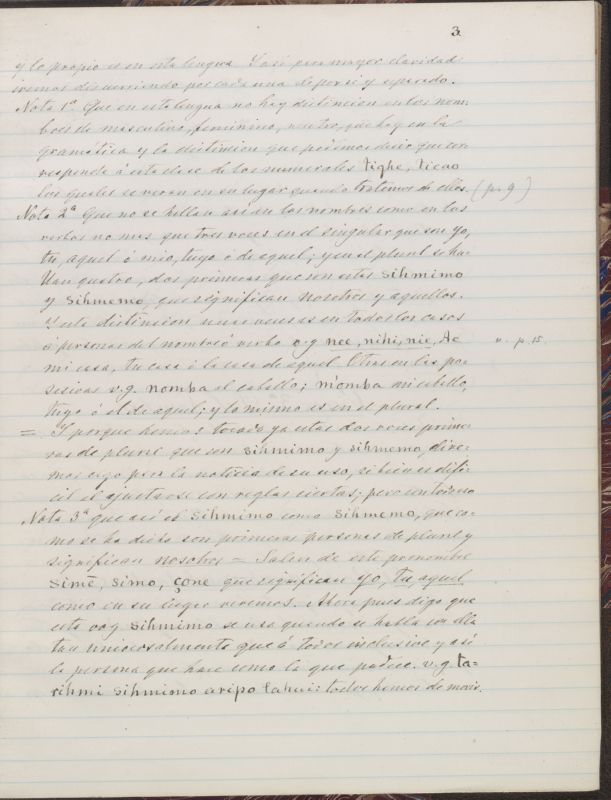 3
y lo propio es en esta lengua. Y así para mayor claridad
iremos discurriendo por cada una de por si y separado.
Nota 1ª Que en esta lengua no hay distincion en los nom-
bres de masculino, feminino, neutro, que hay en la
gramática y la distincion que podemos decir que cor-
responde á esto es la de los numerales tiqhe, ticao
los quales se veran en su lugar quando tratémos de ellos. (p. 9)
Nota 2ª Que no se hallan asi en los nombres como en los
verbos no mas que tres voces en el singular que son yo,
tu, aquel ó mio, tuyo ó de aquel; y en el plural se ha-
llan quatro, dos primeras que son estas sihmimo
y sihmemo, que significan nosotros y aquellos.
Y esta distincion unas veces es en todos los casos
ó personas del nombre ó verbo v.g. nee, nihi, nie, Ae v. p. 15.
mi casa, tu casa ó la casa de aquel. Otras en las po-
sesivas v.g. nomba el caballo; momba mi caballo,
tuyo ó el de aquel; y lo mismo es en el plural.
= Y porque hemos tocado ya estas dos voces prime-
ras de plural que son sihmimo y sihmemo, dire-
mos algo para la noticia de su uso, si bien es difi-
cil el ajustarse con reglas ciertas; pero con todo eso
Nota 3ª que así el sihmimo como sihmemo, que co-
mo se ha dicho son primeras personas de plural y
significan nosotros = Salen de este pronombre
simē, simo, çone que significan yo, tu, aquel
como en su lugar veremos. Ahora pues digo que
esta voz sihmimo se usa quando se habla con ella
tan universalmente que á todos inclusive y asi
la persona que hace como la que padece. v.g. ta=
rihmi sihmimo aripo tahui: todos hemos de morir.